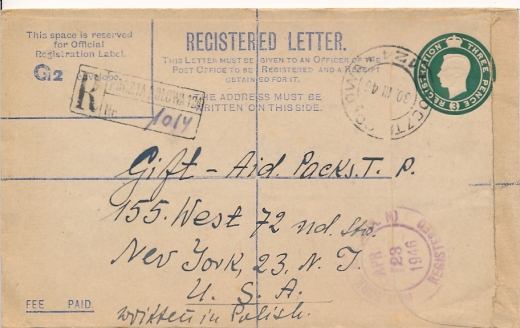 This space is reserved
for Official
Registration Label.
G12
envelope.
REGISTERED LETTER.
THIS LETTER MUST BE GIVEN TO AN OFFICER OF THE
POST OFFICE TO BE REGISTERED AND A RECEIPT
OBTAINED FOR IT.
THE ADDRESS MUST BE
WRITTEN ON THIS SIDE.
REGISTRATION THREE PENCE
3
R
Nr.
1014
POCZTA
30. III 46
Gift-Aid Packs. T. P.
155. West 72 nd. Str.
New York, 23. N. J.
U. S. A.
written in Polish.
FEE PAID.
REGISTERED
APR
23
1946